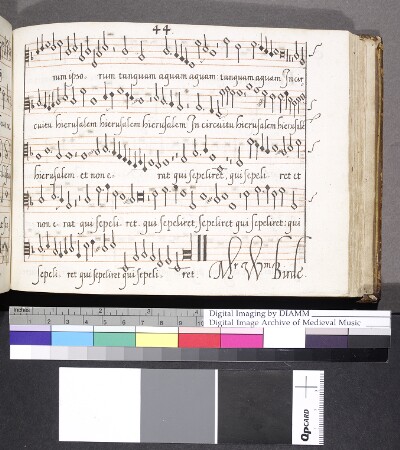 44
rum ipso- rum tanquam aquam aquam: tanquam aquam In cir
cuitu hierusalem hierusalem hierusalem In circuitu hierusalem hierusale
hierusalem et non e- rat qui sepeliret, qui sepeli- ret et
non e- rat qui sepeli- ret. qui sepeliret, sepeliret qui sepeliret: qui
sepeli- ret qui sepeliret qui sepeli- ret. Mr Wm Birde
inches 1 2 3
1 2 3 4 5 6 7 8 9 10
Digital Imaging by DIAMM
Digital Image Archive of Medieval Music
QPCARD